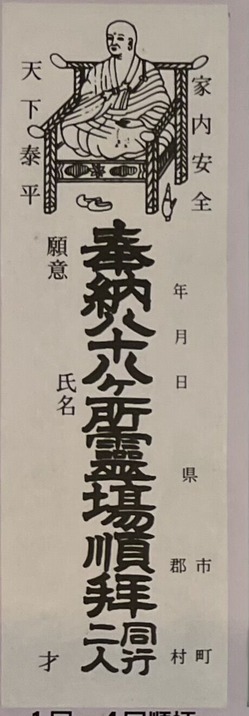 家内安全
天下泰平
奉納八十八ヶ所霊場順拝
同行
二人
年 月 日
県
市 町
郡 村
願意
氏名
才